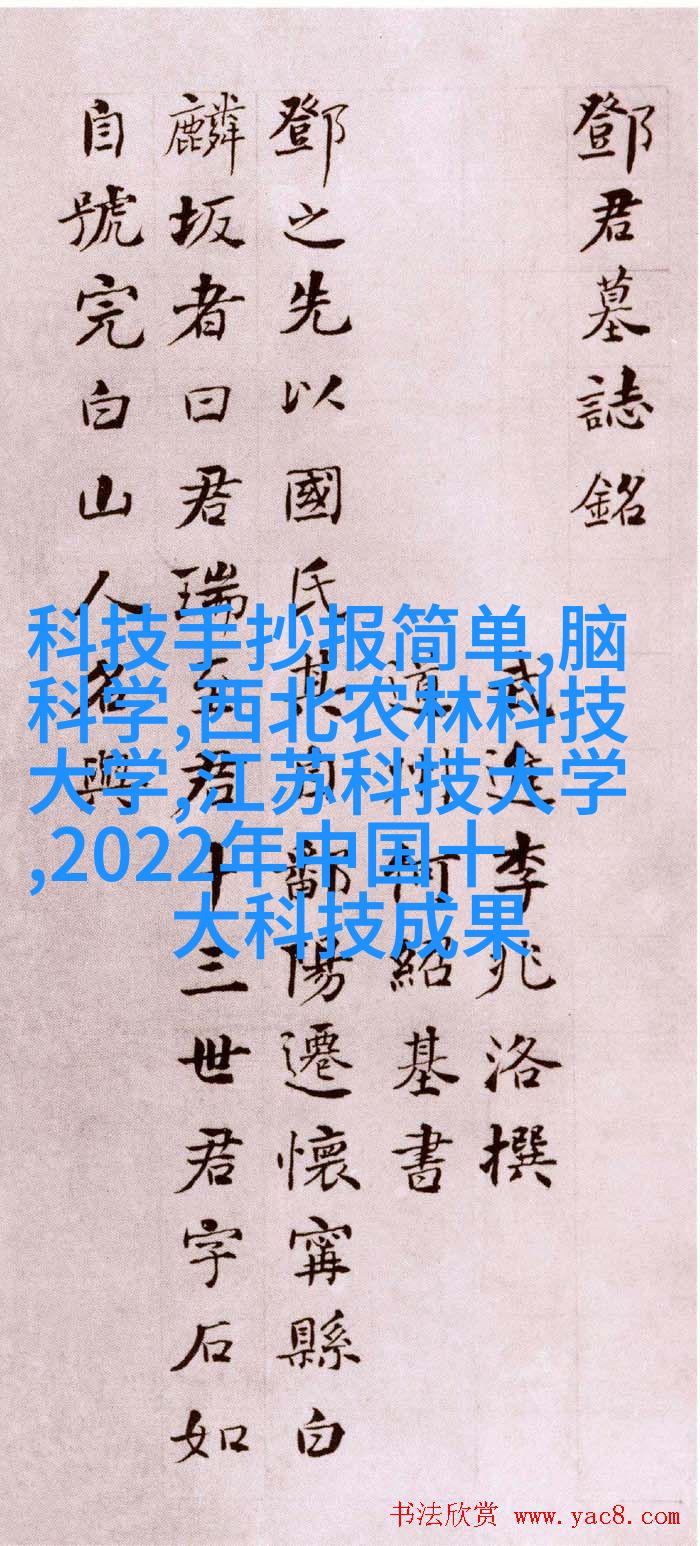 鄧君墓誌銘
武進李兆洛撰
道州何紹基書
鄧之先以國氏其自鄱陽遷懷甯縣白
麟坂者曰君瑞至君十三世君字石如
自號完白山人名與
科技手抄报简单,脑
科学,西北农林科技
大学,江苏科技大学
,2022年中国十
大科技成果
书法欣赏 www.yac8.com